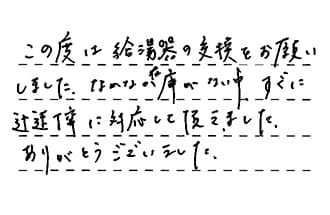 この度は給湯器の交換をお願い
しました。なかなか在庫がない中 すぐに
に対応して頂きました。
ありがとうございました。